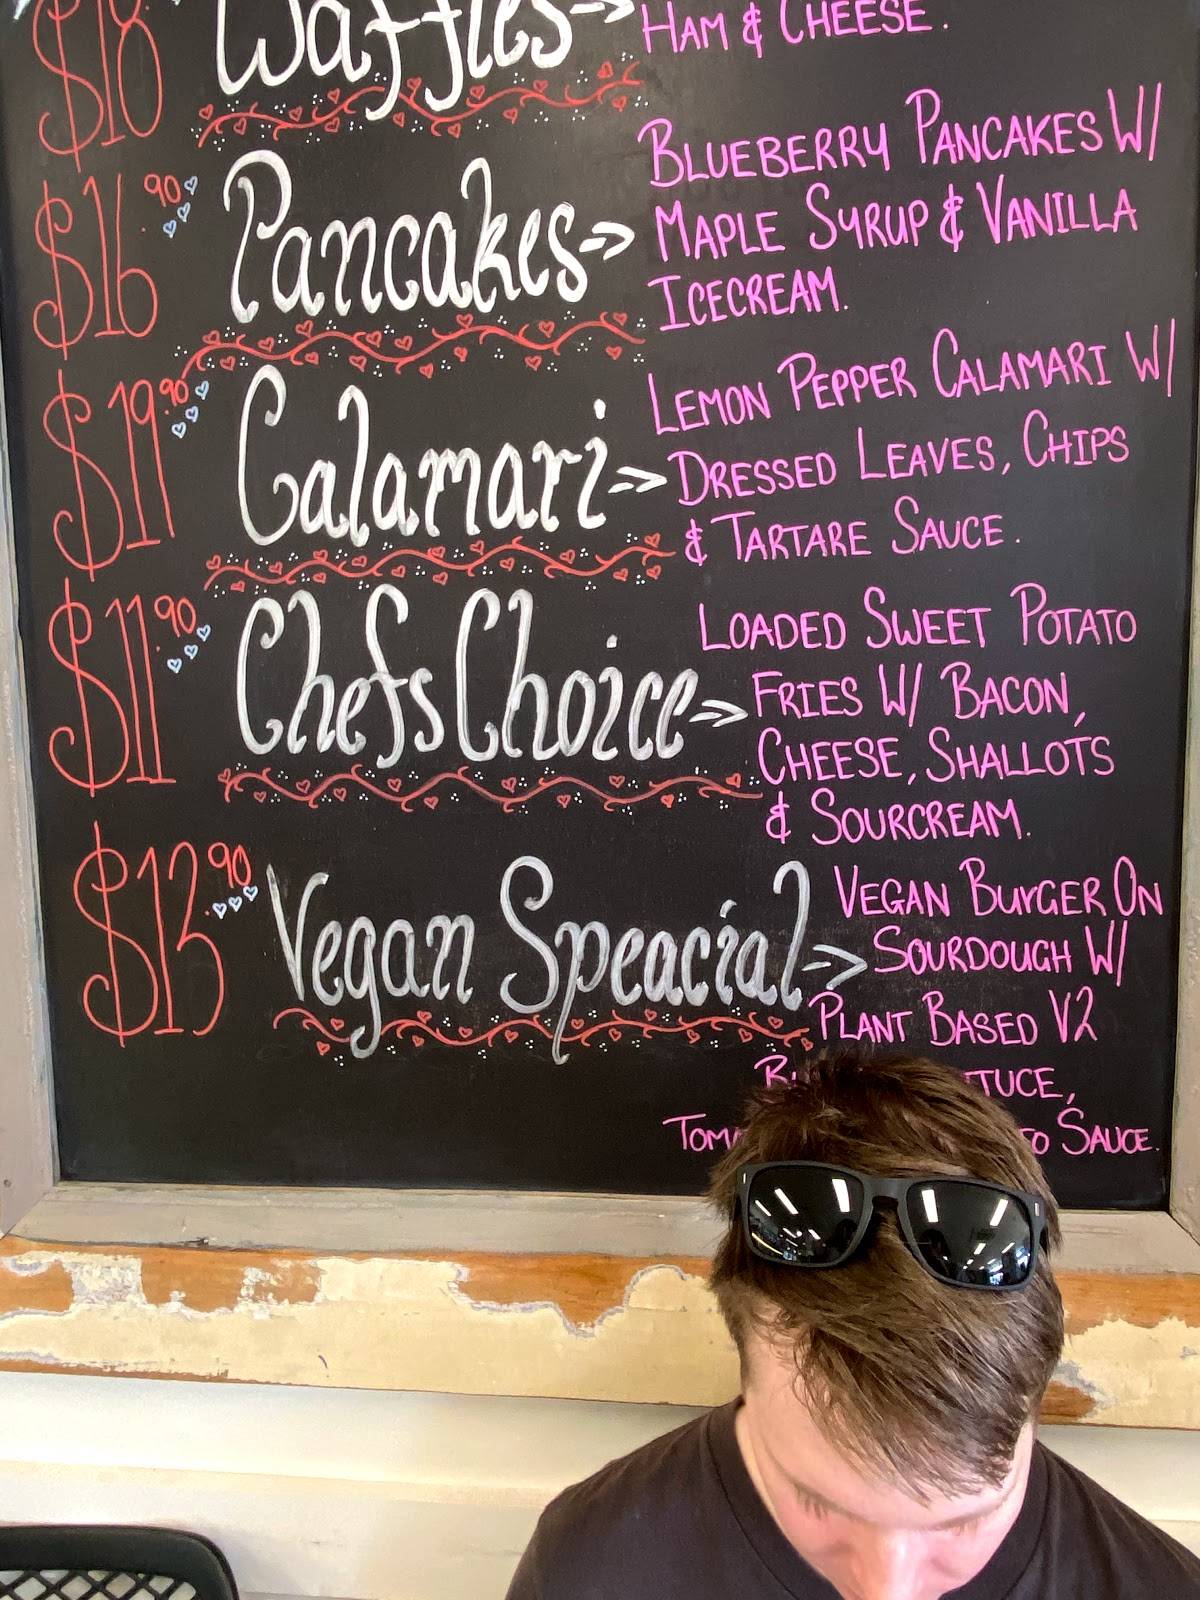 $18 Waffles → HAM & CHEESE.
$16.90 Pancakes → BLUEBERRY PANCAKES W/
MAPLE SYRUP & VANILLA
ICECREAM.
$19.90 Calamari → LEMON PEPPER CALAMARI W/
DRESSED LEAVES, CHIPS
& TARTARE SAUCE.
$11.90 Chefs Choice → LOADED SWEET POTATO
FRIES W/ BACON,
CHEESE, SHALLOTS
& SOURCREAM.
$13.90 Vegan Speacial → VEGAN BURGER ON
SOURDOUGH W/
PLANT BASED V2
SAUCE.